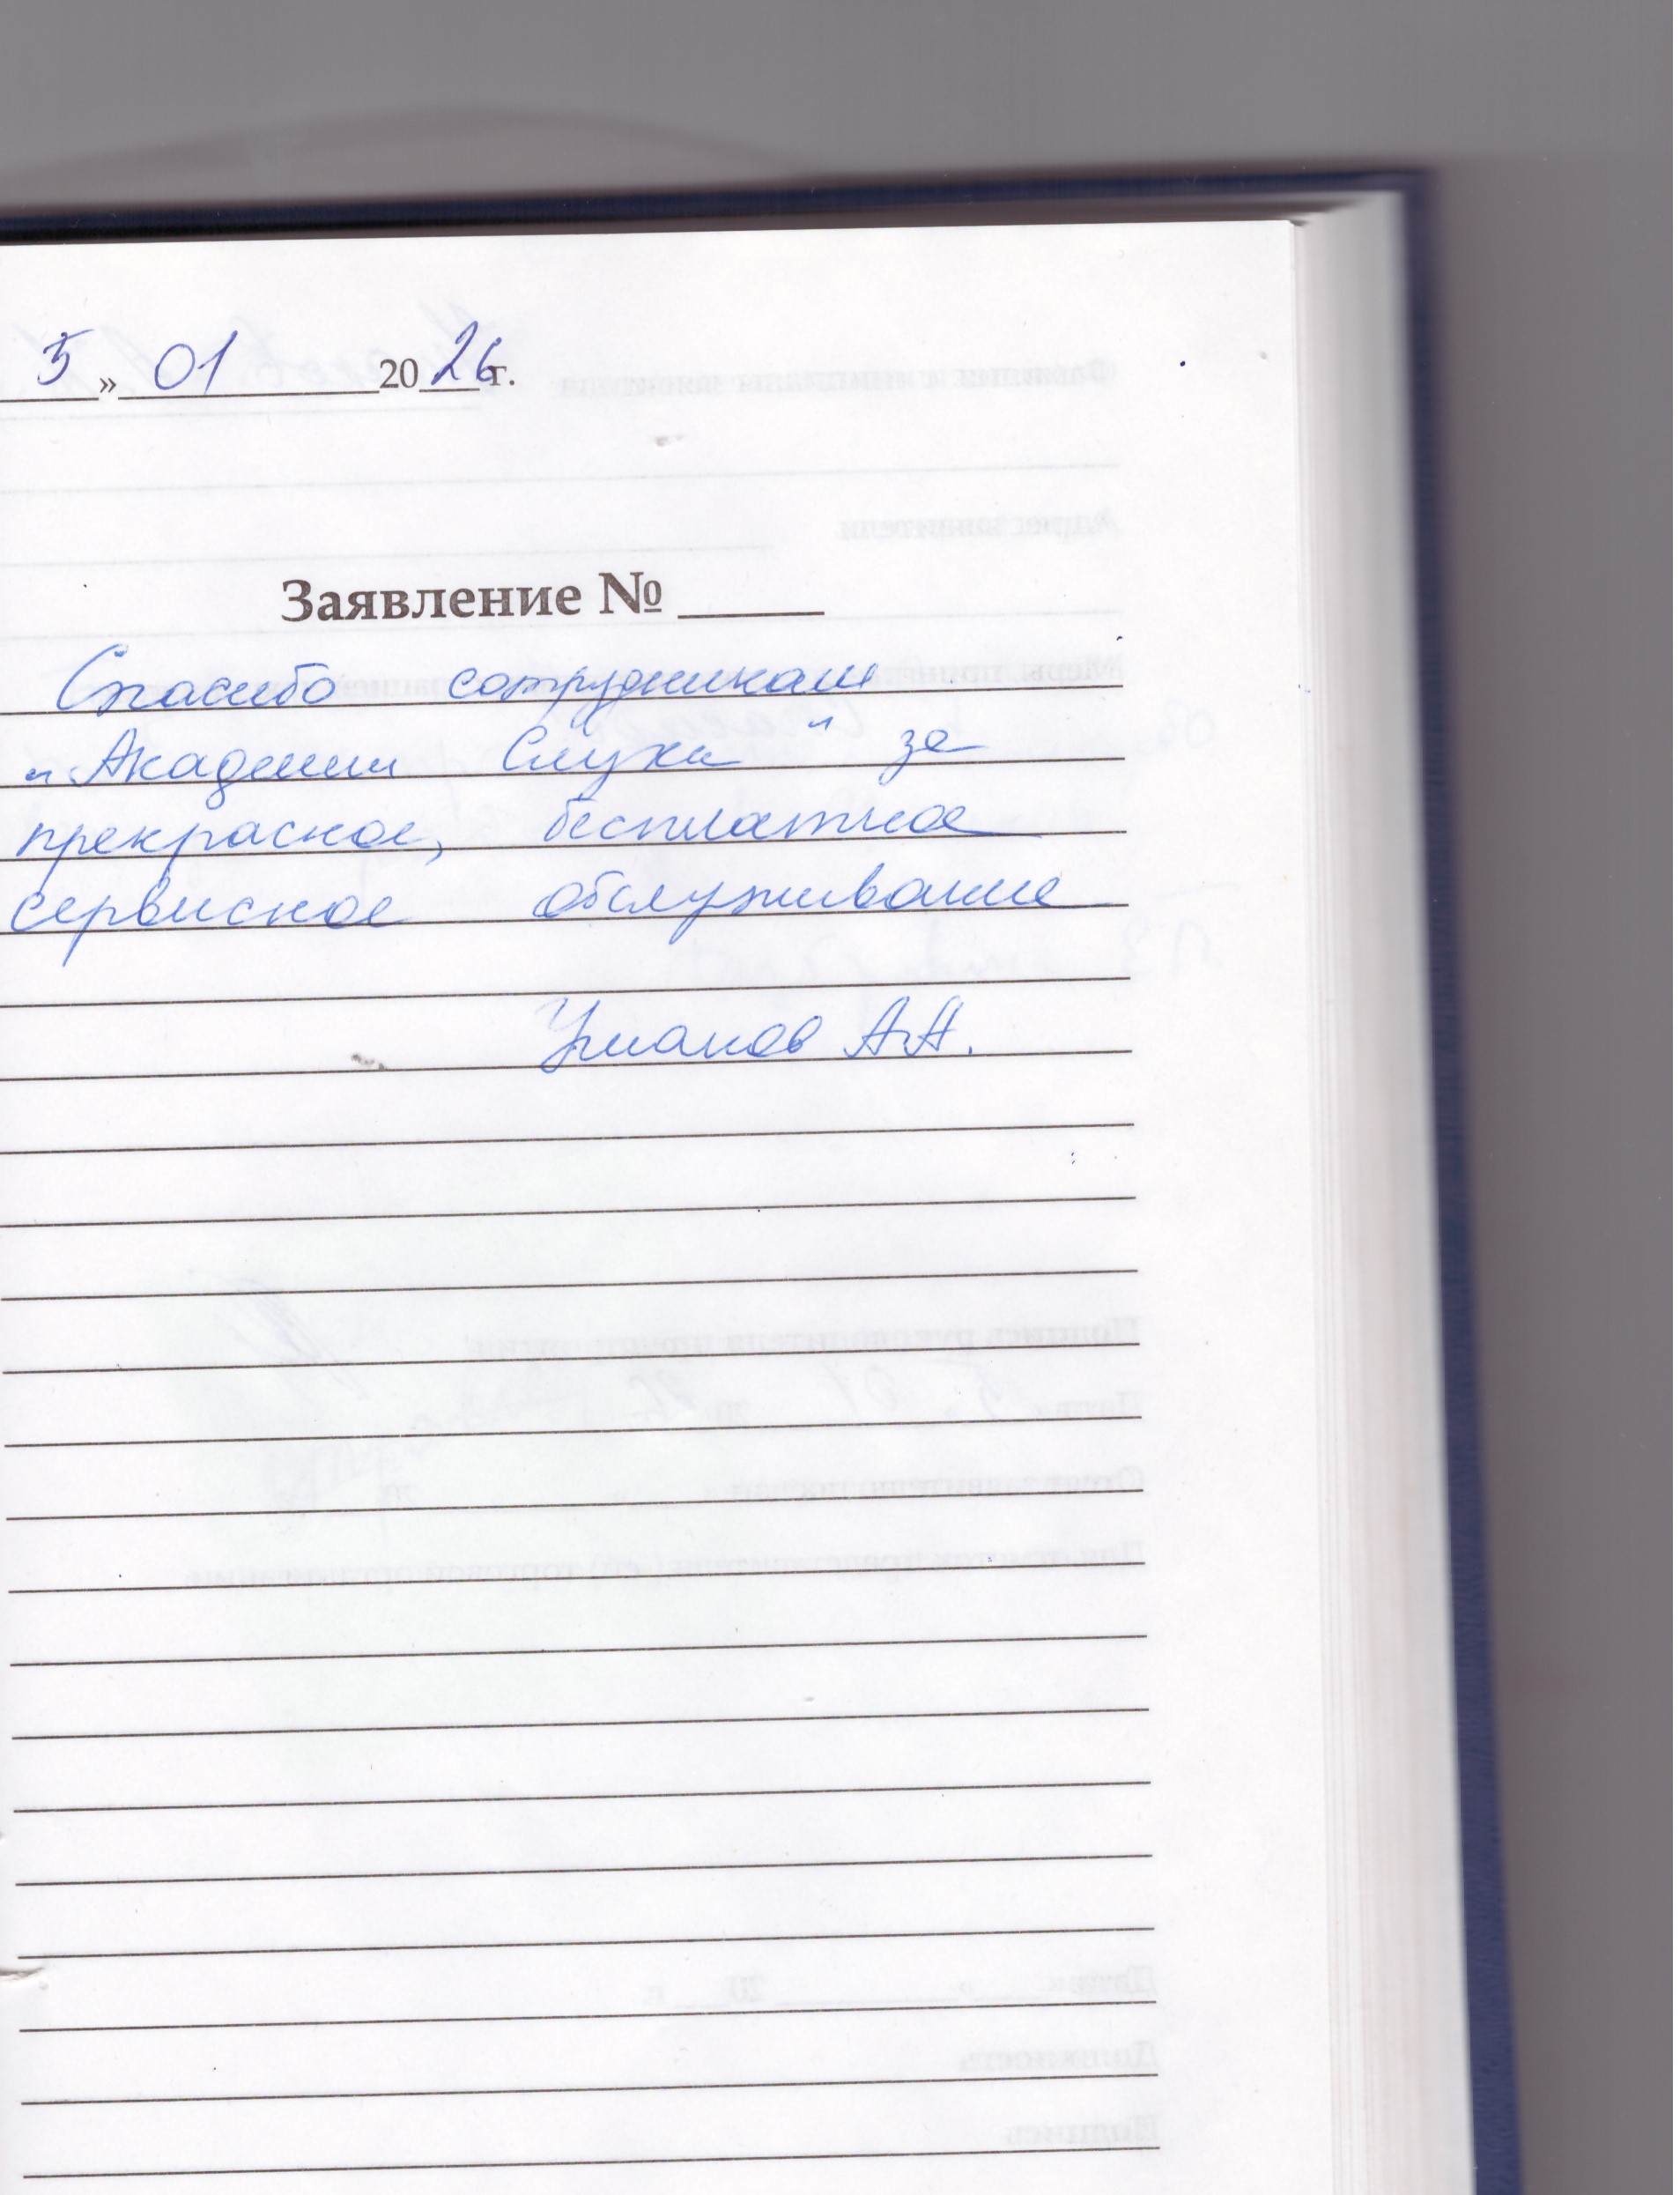 5 » 01 2026 г.
Заявление № _____
Спасибо сотрудникам
"Академии Слуха" за
прекрасное, бесплатное
сервисное обслуживание
Усманов А.А.